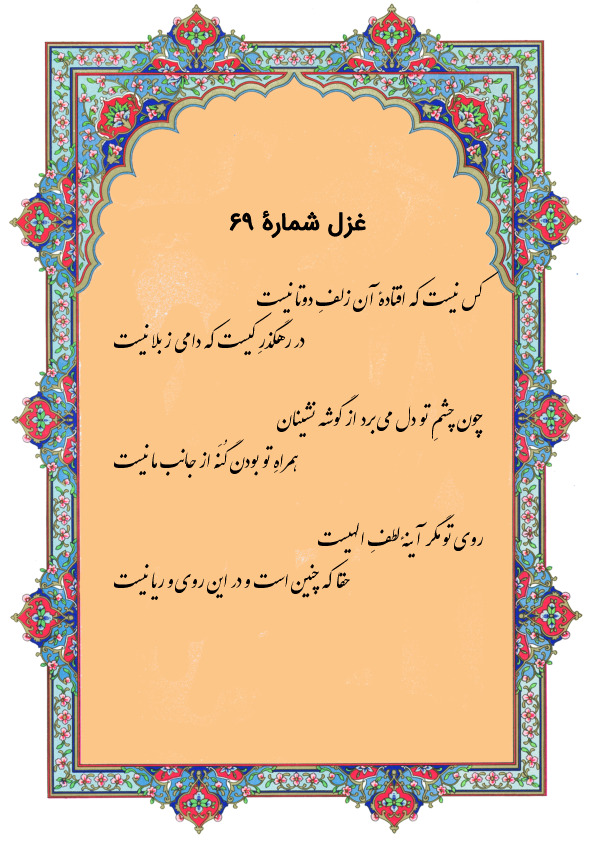 غزل شمارهٔ ۶۹
کس نیست که افتادهٔ آن زلفِ دوتا نیست
در رهگذرِ کیست که دامی ز بلا نیست
چون چشمِ تو دل می‌برد از گوشه نشینان
همراهِ تو بودن گُنَه از جانب ما نیست
روی تو مگر آینهٔ لطفِ الهیست
حقا که چنین است و در این روی و ریا نیست